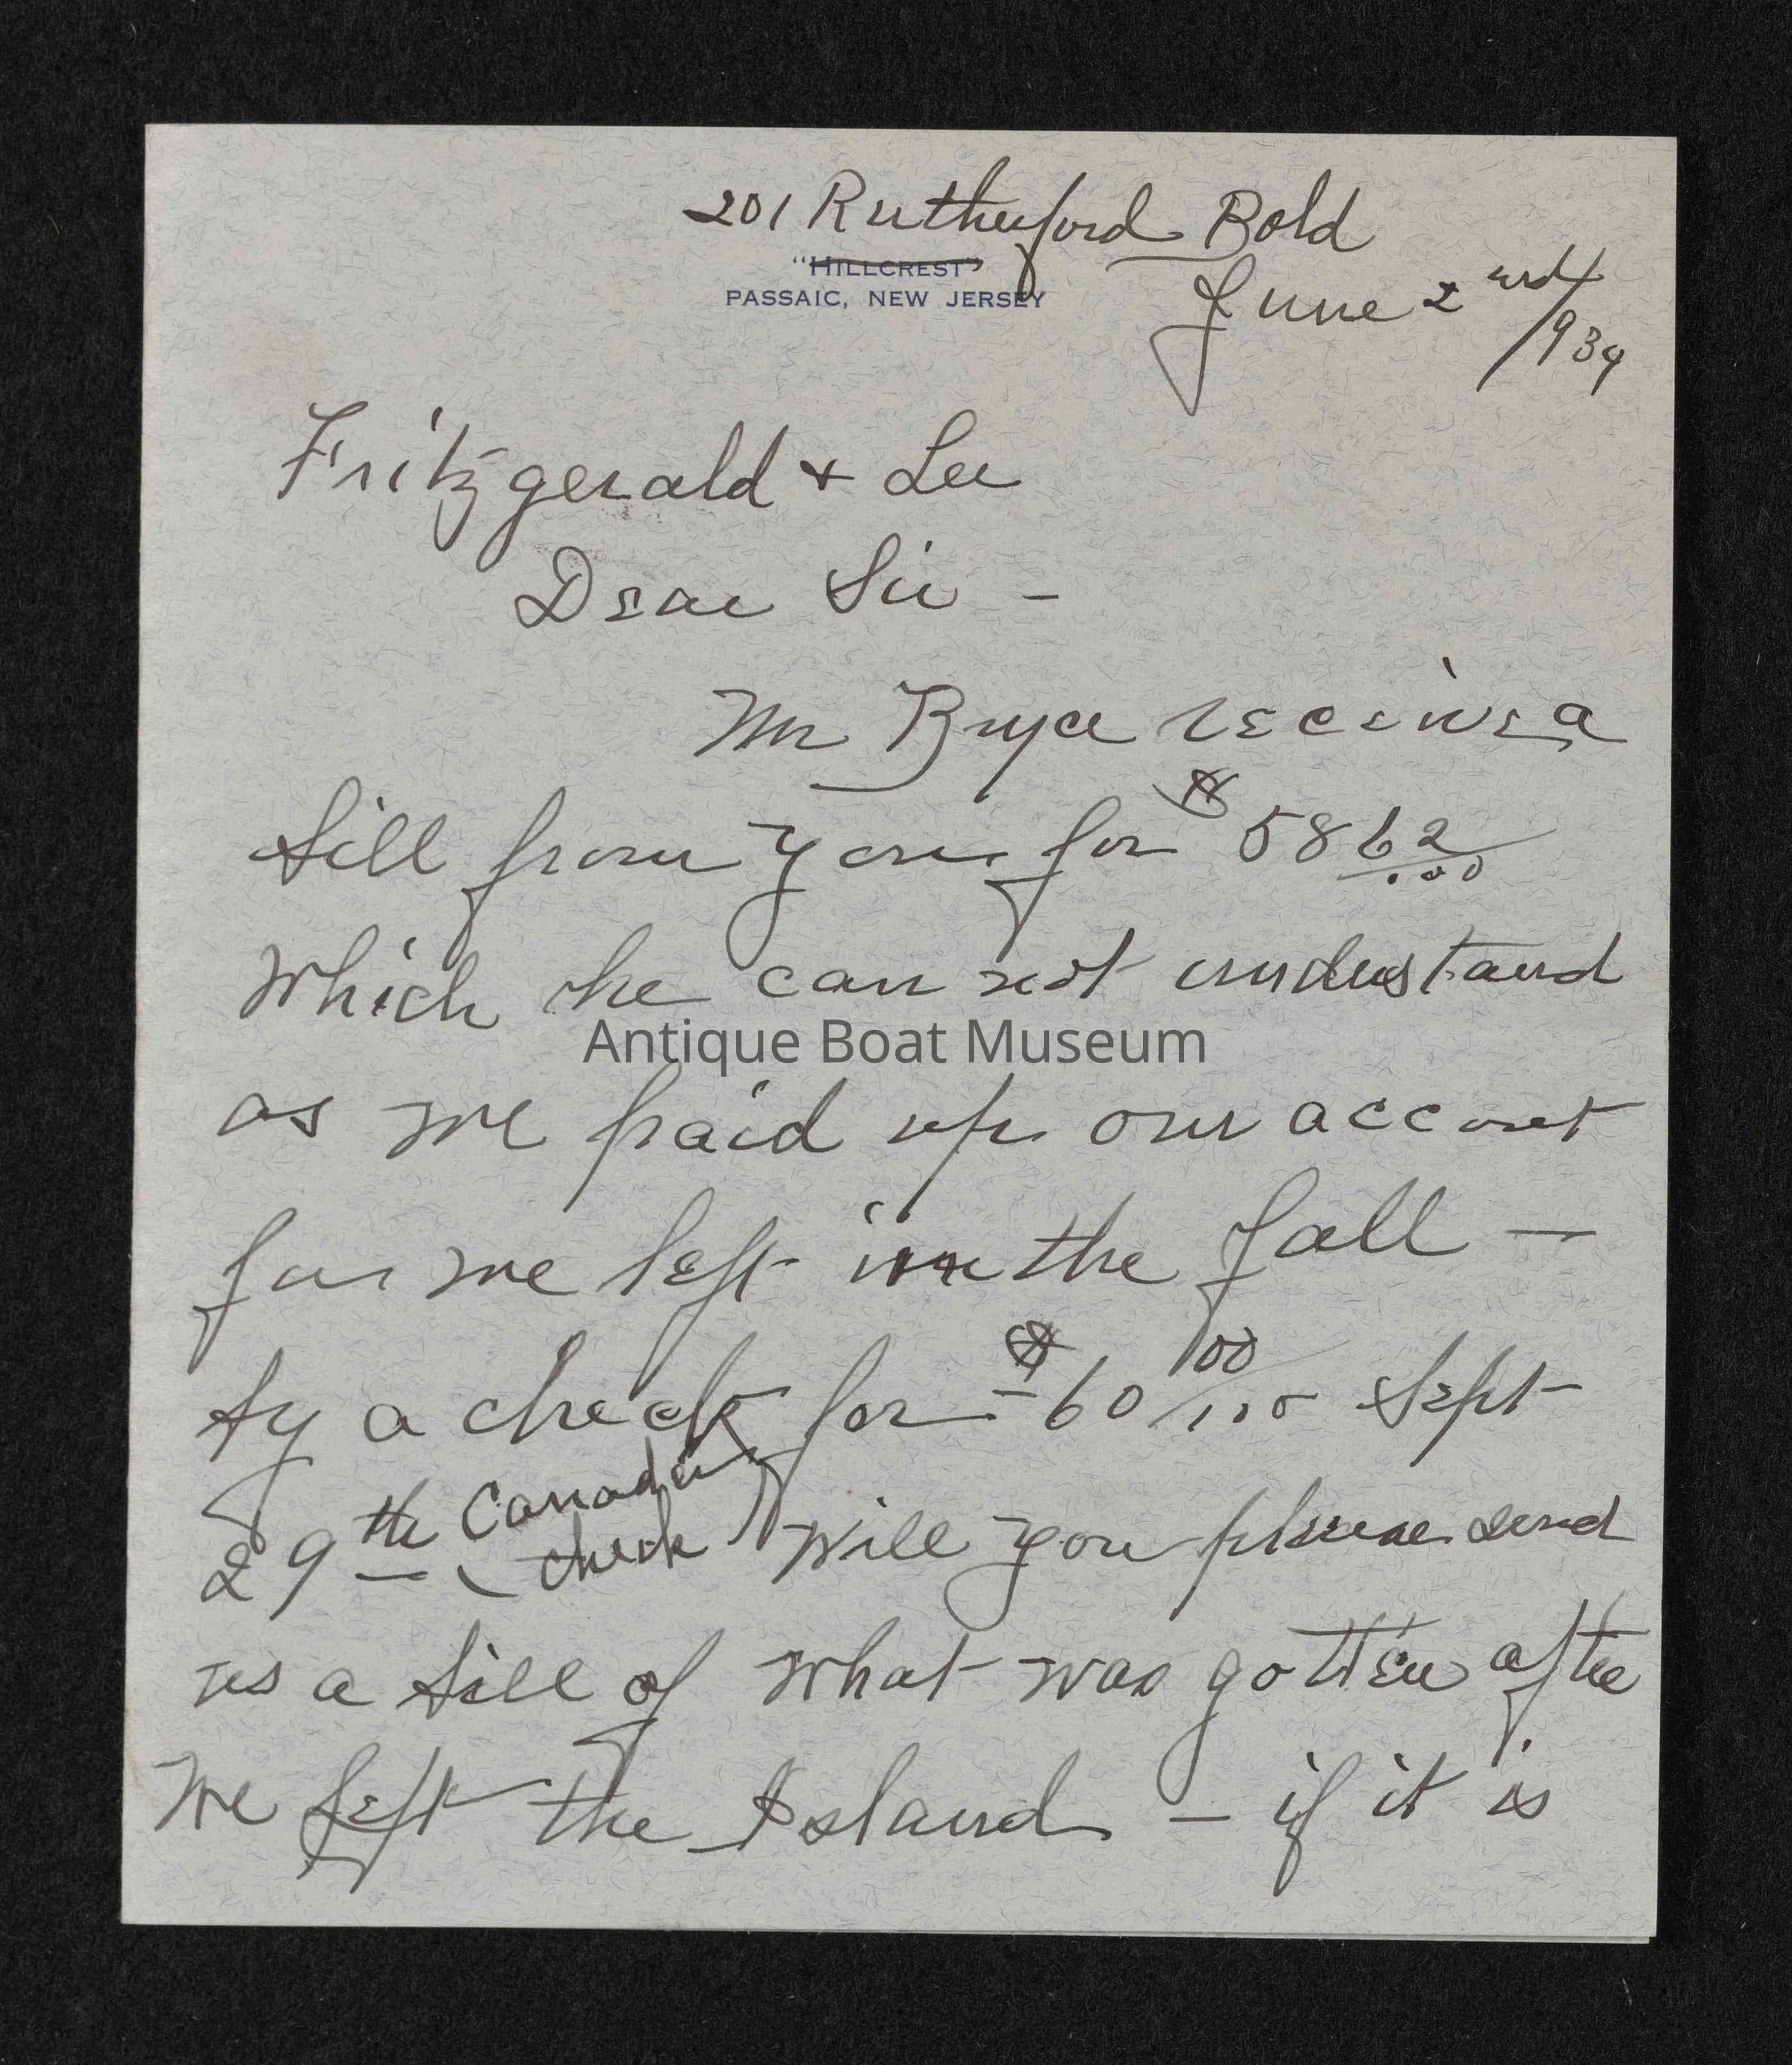 201 Rutherford Bold
"HILLCREST"
PASSAIC, NEW JERSEY
June 2nd/
1934
Fritzgerald + Lee
Dear Sir -
Mr Bryce received a
bill from you for $ 58 62/100
which he can not understand
as we paid up our account
for we left in the fall -
by a check for $60 00/100 Sept
29th (Canadian check) Will you please send
us a bill of what was gotten after
we left the Island - if it is
Antique Boat Museum